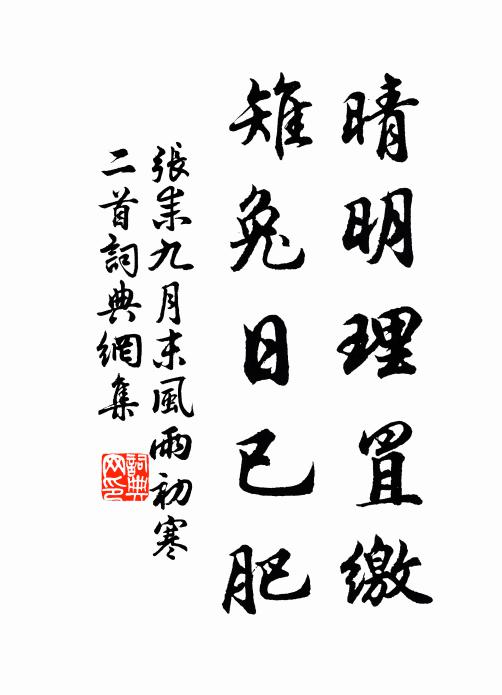 晴明理罝繳
雉兔日已肥
張耒九月末風雨初寒
二首詞典網集
詞典網印